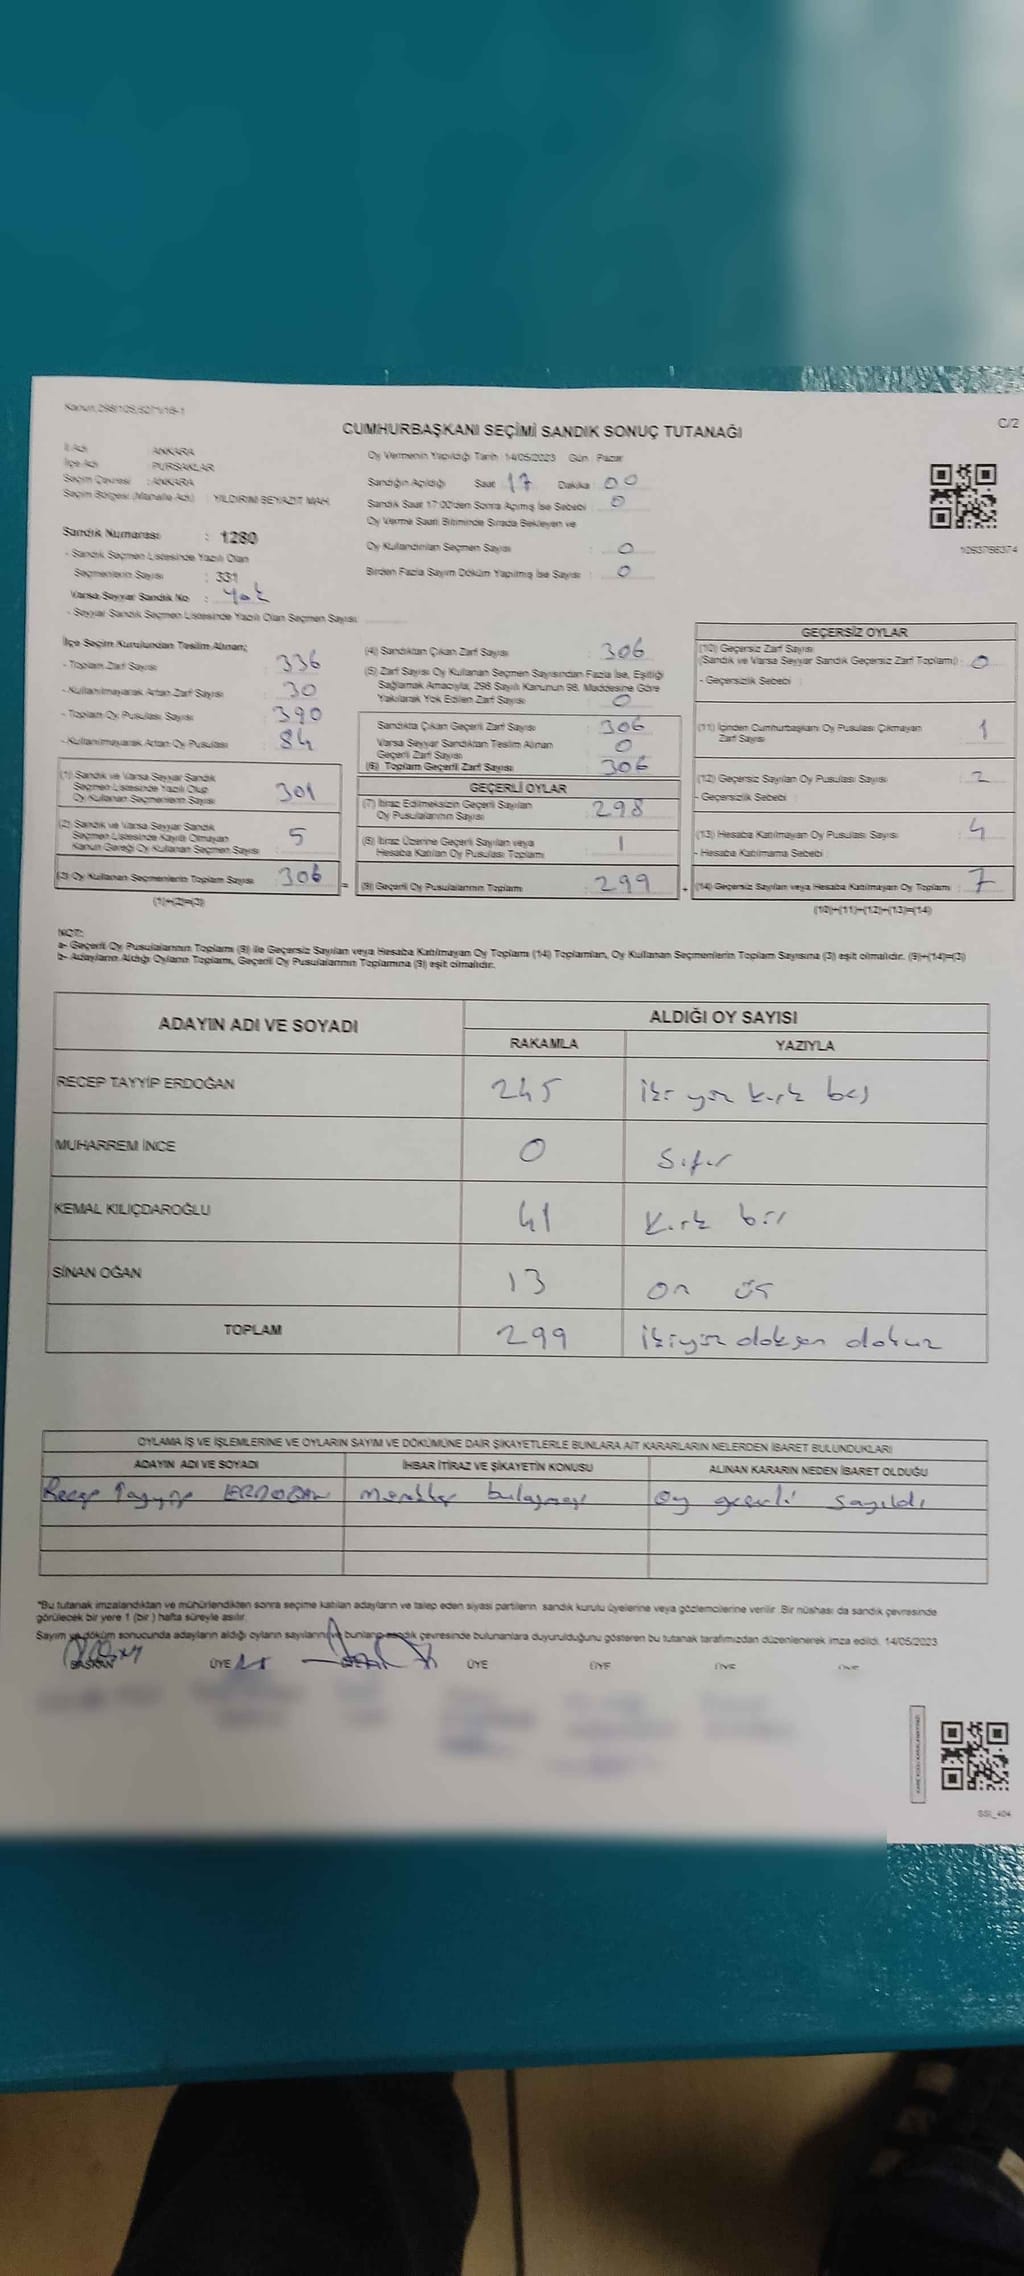 Kanun,298/105,6271/16-1
C/2
CUMHURBAŞKANI SEÇİMİ SANDIK SONUÇ TUTANAĞI
İl Adı ANKARA
İlçe Adı PURSAKLAR
Seçim Çevresi : ANKARA
Seçim Bölgesi (Mahalle Adı) : YILDIRIM BEYAZIT MAH.
Sandık Numarası : 1280
- Sandık Seçmen Listesinde Yazılı Olan
Seçmenlerin Sayısı : 331
Varsa Seyyar Sandık No : Yok
- Seyyar Sandık Seçmen Listesinde Yazılı Olan Seçmen Sayısı
Oy Vermenin Yapıldığı Tarih : 14/05/2023 Gün : Pazar
Sandığın Açıldığı Saat 17 Dakika : 00
Sandık Saat 17:00'den Sonra Açılmış İse Sebebi : 0
Oy Verme Saati Bitiminde Sırada Bekleyen ve
Oy Kullandırılan Seçmen Sayısı : 0
Birden Fazla Sayım Döküm Yapılmış İse Sayısı : 0
1093766374
İlçe Seçim Kurulundan Teslim Alınan;
- Toplam Zarf Sayısı : 336
- Kullanılmayarak Artan Zarf Sayısı : 30
- Toplam Oy Pusulası Sayısı : 390
- Kullanılmayarak Artan Oy Pusulası : 84
(1) Sandık ve Varsa Seyyar Sandık
Seçmen Listesinde Yazılı Olup
Oy Kullanan Seçmenlerin Sayısı : 301
(2) Sandık ve Varsa Seyyar Sandık
Seçmen Listesinde Kayıtlı Olmayan
Kanun Gereği Oy Kullanan Seçmen Sayısı : 5
(3) Oy Kullanan Seçmenlerin Toplam Sayısı : 306
(1)+(2)=(3)
(4) Sandıktan Çıkan Zarf Sayısı : 306
(5) Zarf Sayısı Oy Kullanan Seçmen Sayısından Fazla İse, Eşitliği
Sağlamak Amacıyla, 298 Sayılı Kanunun 98. Maddesine Göre
Yakılarak Yok Edilen Zarf Sayısı : 0
Sandıkta Çıkan Geçerli Zarf Sayısı : 306
Varsa Seyyar Sandıktan Teslim Alınan
Geçerli Zarf Sayısı : 0
(6) Toplam Geçerli Zarf Sayısı : 306
GEÇERLİ OYLAR
(7) İtiraz Edilmeksizin Geçerli Sayılan
Oy Pusulalarının Sayısı : 298
(8) İtiraz Üzerine Geçerli Sayılan veya
Hesaba Katılan Oy Pusulası Toplamı : 1
= (9) Geçerli Oy Pusulalarının Toplamı : 299
GEÇERSİZ OYLAR
(10) Geçersiz Zarf Sayısı
(Sandık ve Varsa Seyyar Sandık Geçersiz Zarf Toplamı) : 0
- Geçersizlik Sebebi :
(11) İçinden Cumhurbaşkanı Oy Pusulası Çıkmayan
Zarf Sayısı : 1
(12) Geçersiz Sayılan Oy Pusulası Sayısı : 2
- Geçersizlik Sebebi :
(13) Hesaba Katılmayan Oy Pusulası Sayısı : 4
- Hesaba Katılmama Sebebi :
+ (14) Geçersiz Sayılan veya Hesaba Katılmayan Oy Toplamı : 7
(10)+(11)+(12)+(13)=(14)
NOT:
a- Geçerli Oy Pusulalarının Toplamı (9) ile Geçersiz Sayılan veya Hesaba Katılmayan Oy Toplamı (14) Toplamları, Oy Kullanan Seçmenlerin Toplam Sayısına (3) eşit olmalıdır. (9)+(14)=(3)
b- Adayların Aldığı Oyların Toplamı, Geçerli Oy Pusulalarının Toplamına (9) eşit olmalıdır.
ADAYIN ADI VE SOYADI ALDIĞI OY SAYISI
RAKAMLA YAZIYLA
RECEP TAYYİP ERDOĞAN 245 iki yüz kırk beş
MUHARREM İNCE 0 Sıfır
KEMAL KILIÇDAROĞLU 41 Kırk bir
SİNAN OĞAN 13 on üç
TOPLAM 299 ikiyüz doksan dokuz
OYLAMA İŞ VE İŞLEMLERİNE VE OYLARIN SAYIM VE DÖKÜMÜNE DAİR ŞİKAYETLERLE BUNLARA AİT KARARLARIN NELERDEN İBARET BULUNDUKLARI
ADAYIN ADI VE SOYADI İHBAR İTİRAZ VE ŞİKAYETİN KONUSU ALINAN KARARIN NEDEN İBARET OLDUĞU
Recep Tayyip ERDOĞAN mürekkep bulaşması Oy geçerli sayıldı
"Bu tutanak imzalandıktan ve mühürlendikten sonra seçime katılan adayların ve talep eden siyasi partilerin sandık kurulu üyelerine veya gözlemcilerine verilir. Bir nüshası da sandık çevresinde
görülecek bir yere 1 (bir ) hafta süreyle asılır.
Sayım ve döküm sonucunda adayların aldığı oyların sayılarını ve bunların sandık çevresinde bulunanlara duyurulduğunu gösteren bu tutanak tarafımızdan düzenlenerek imza edildi. 14/05/2023
BAŞKAN ÜYE ÜYE ÜYE ÜYE ÜYE
SSİ_404